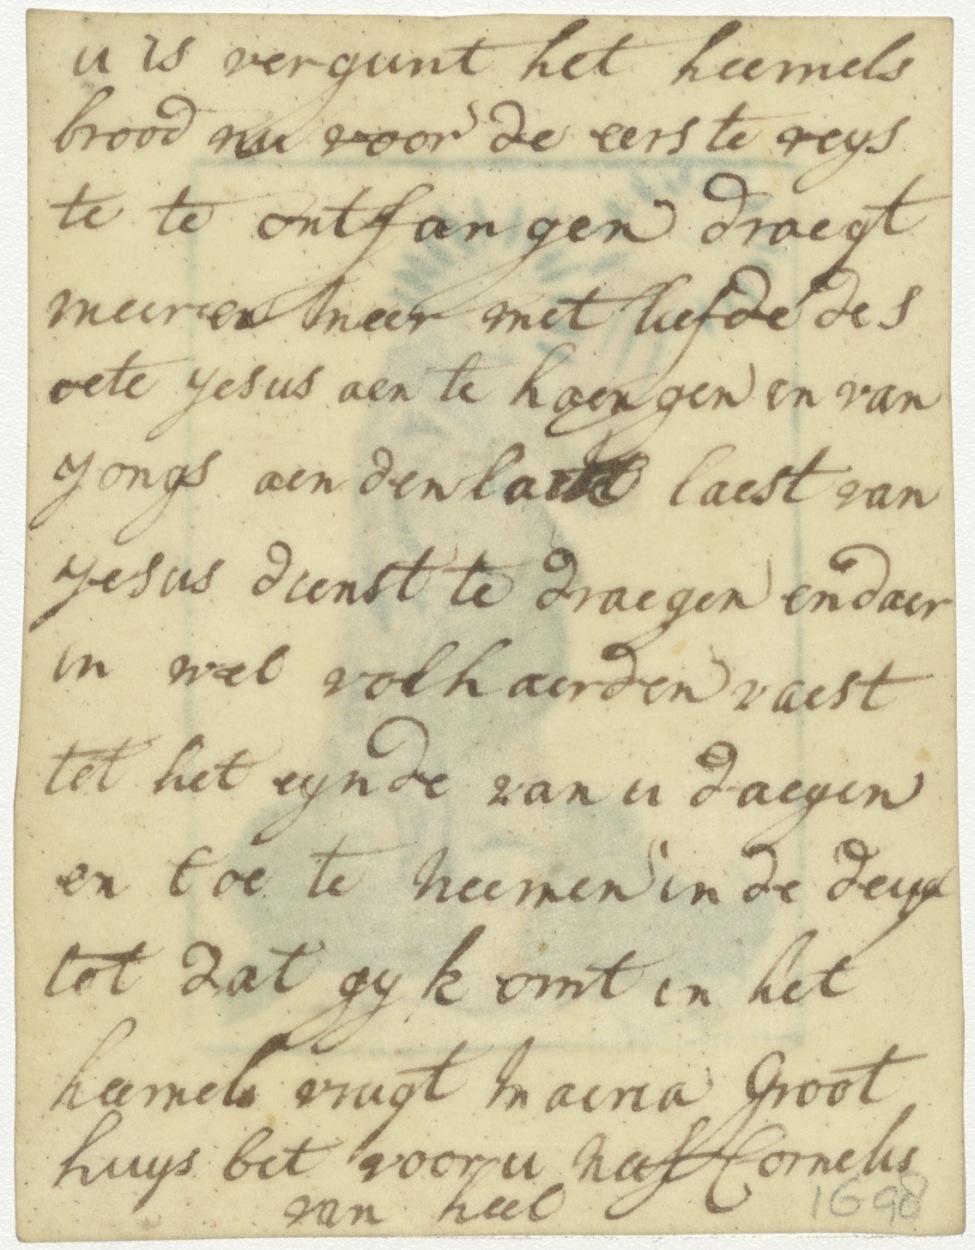 u is vergunt het heemels
brood nu voor de eerste reys
te te ontfangen draegt
meer en meer met liefde de s
oete yesus aen te haengen en van
yongs aen den laest van
yesus dienst te draegen en daer
in wel volhaerden vaest
tot het eynde van u daegen
en toe te neemen in de deugt
tot dat gy komt in het
heemels vrugt maeria Groot
huys bet voor u neef Cornelis
van heel
1698